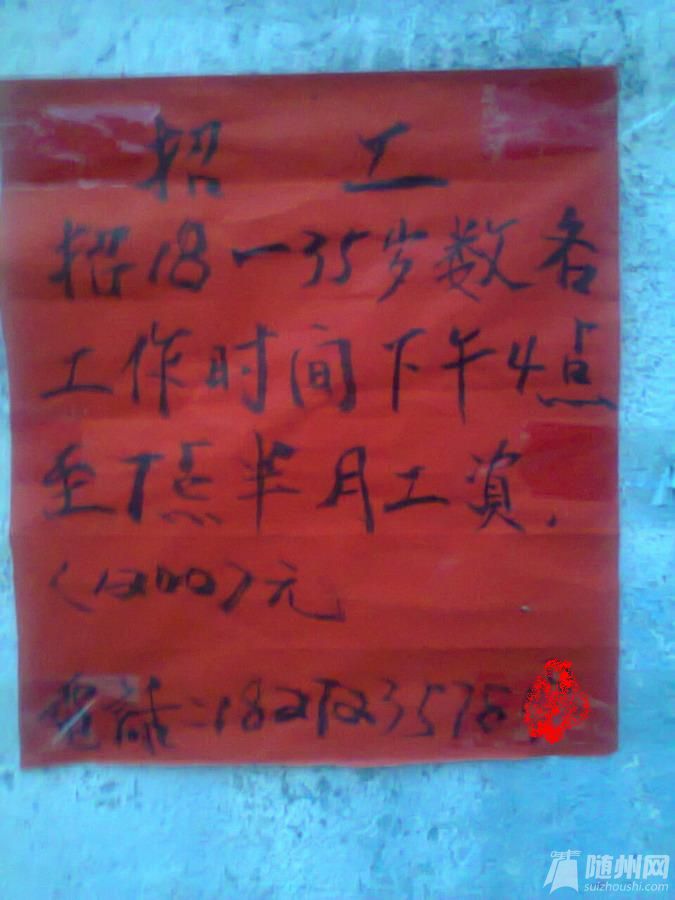 招 工
招18一35岁数名
工作时间下午4点
至7点半月工资.
(1200)元
电话:182723575
随州网
suizhoushi.com